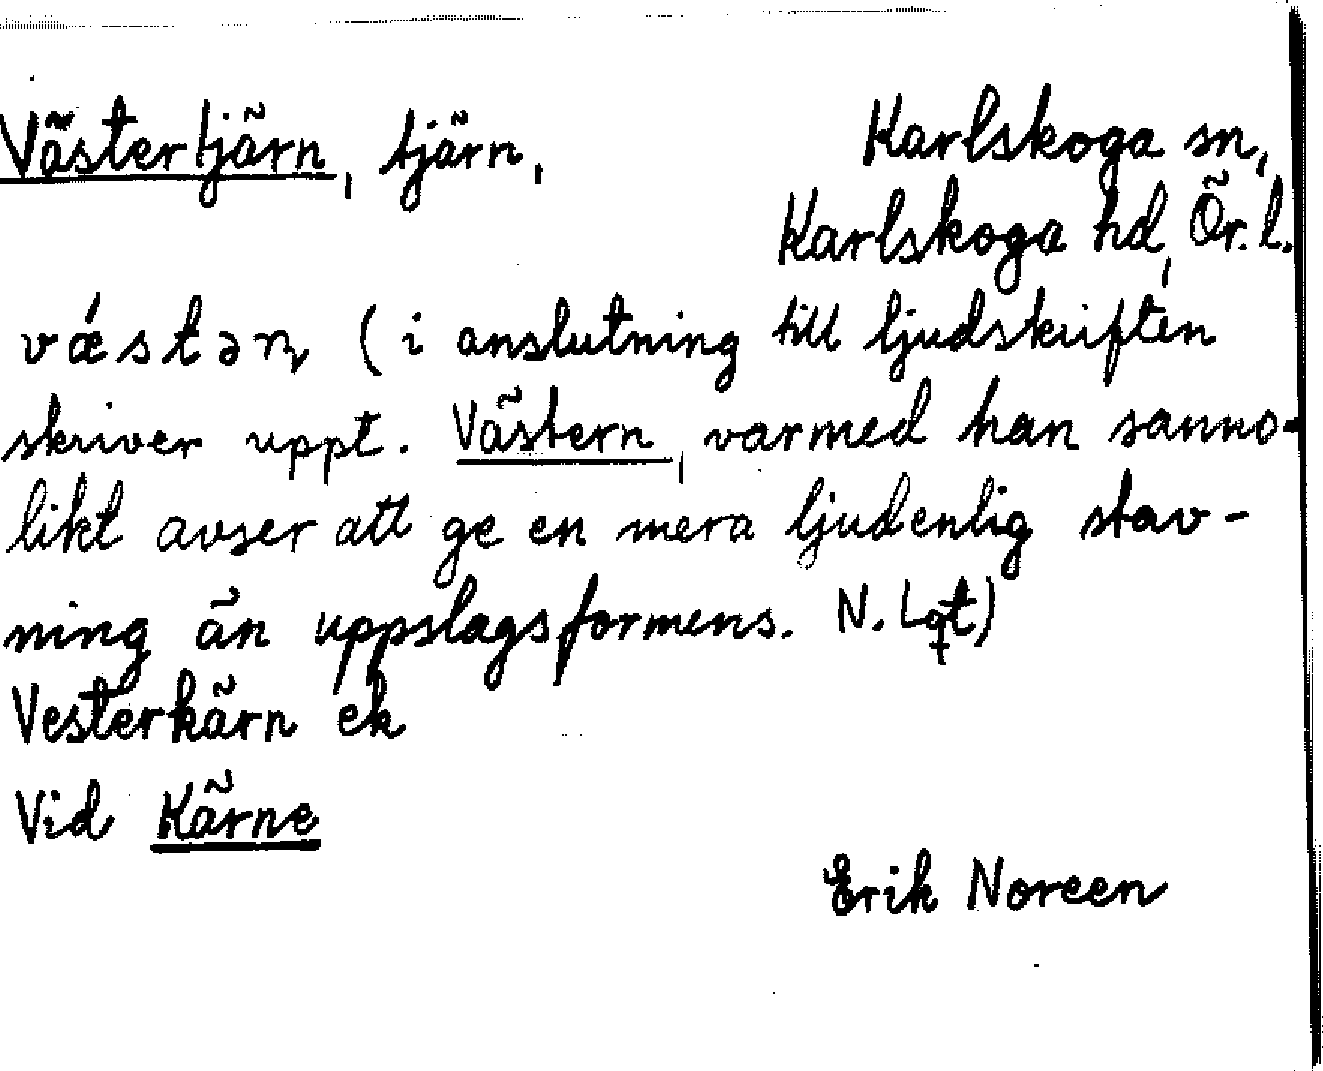 Västertjärn, tjärn, Karlskoga sn,
Karlskoga hd, Ör. l.
vǽstəɳ (i anslutning till ljudskriften
skriver uppt. Västern, varmed han sanno-
likt avser att ge en mera ljudenlig stav-
ning än uppslagsformens. N. Lqt)
Vesterkärn ek
Vid Kärne
Erik Noreen